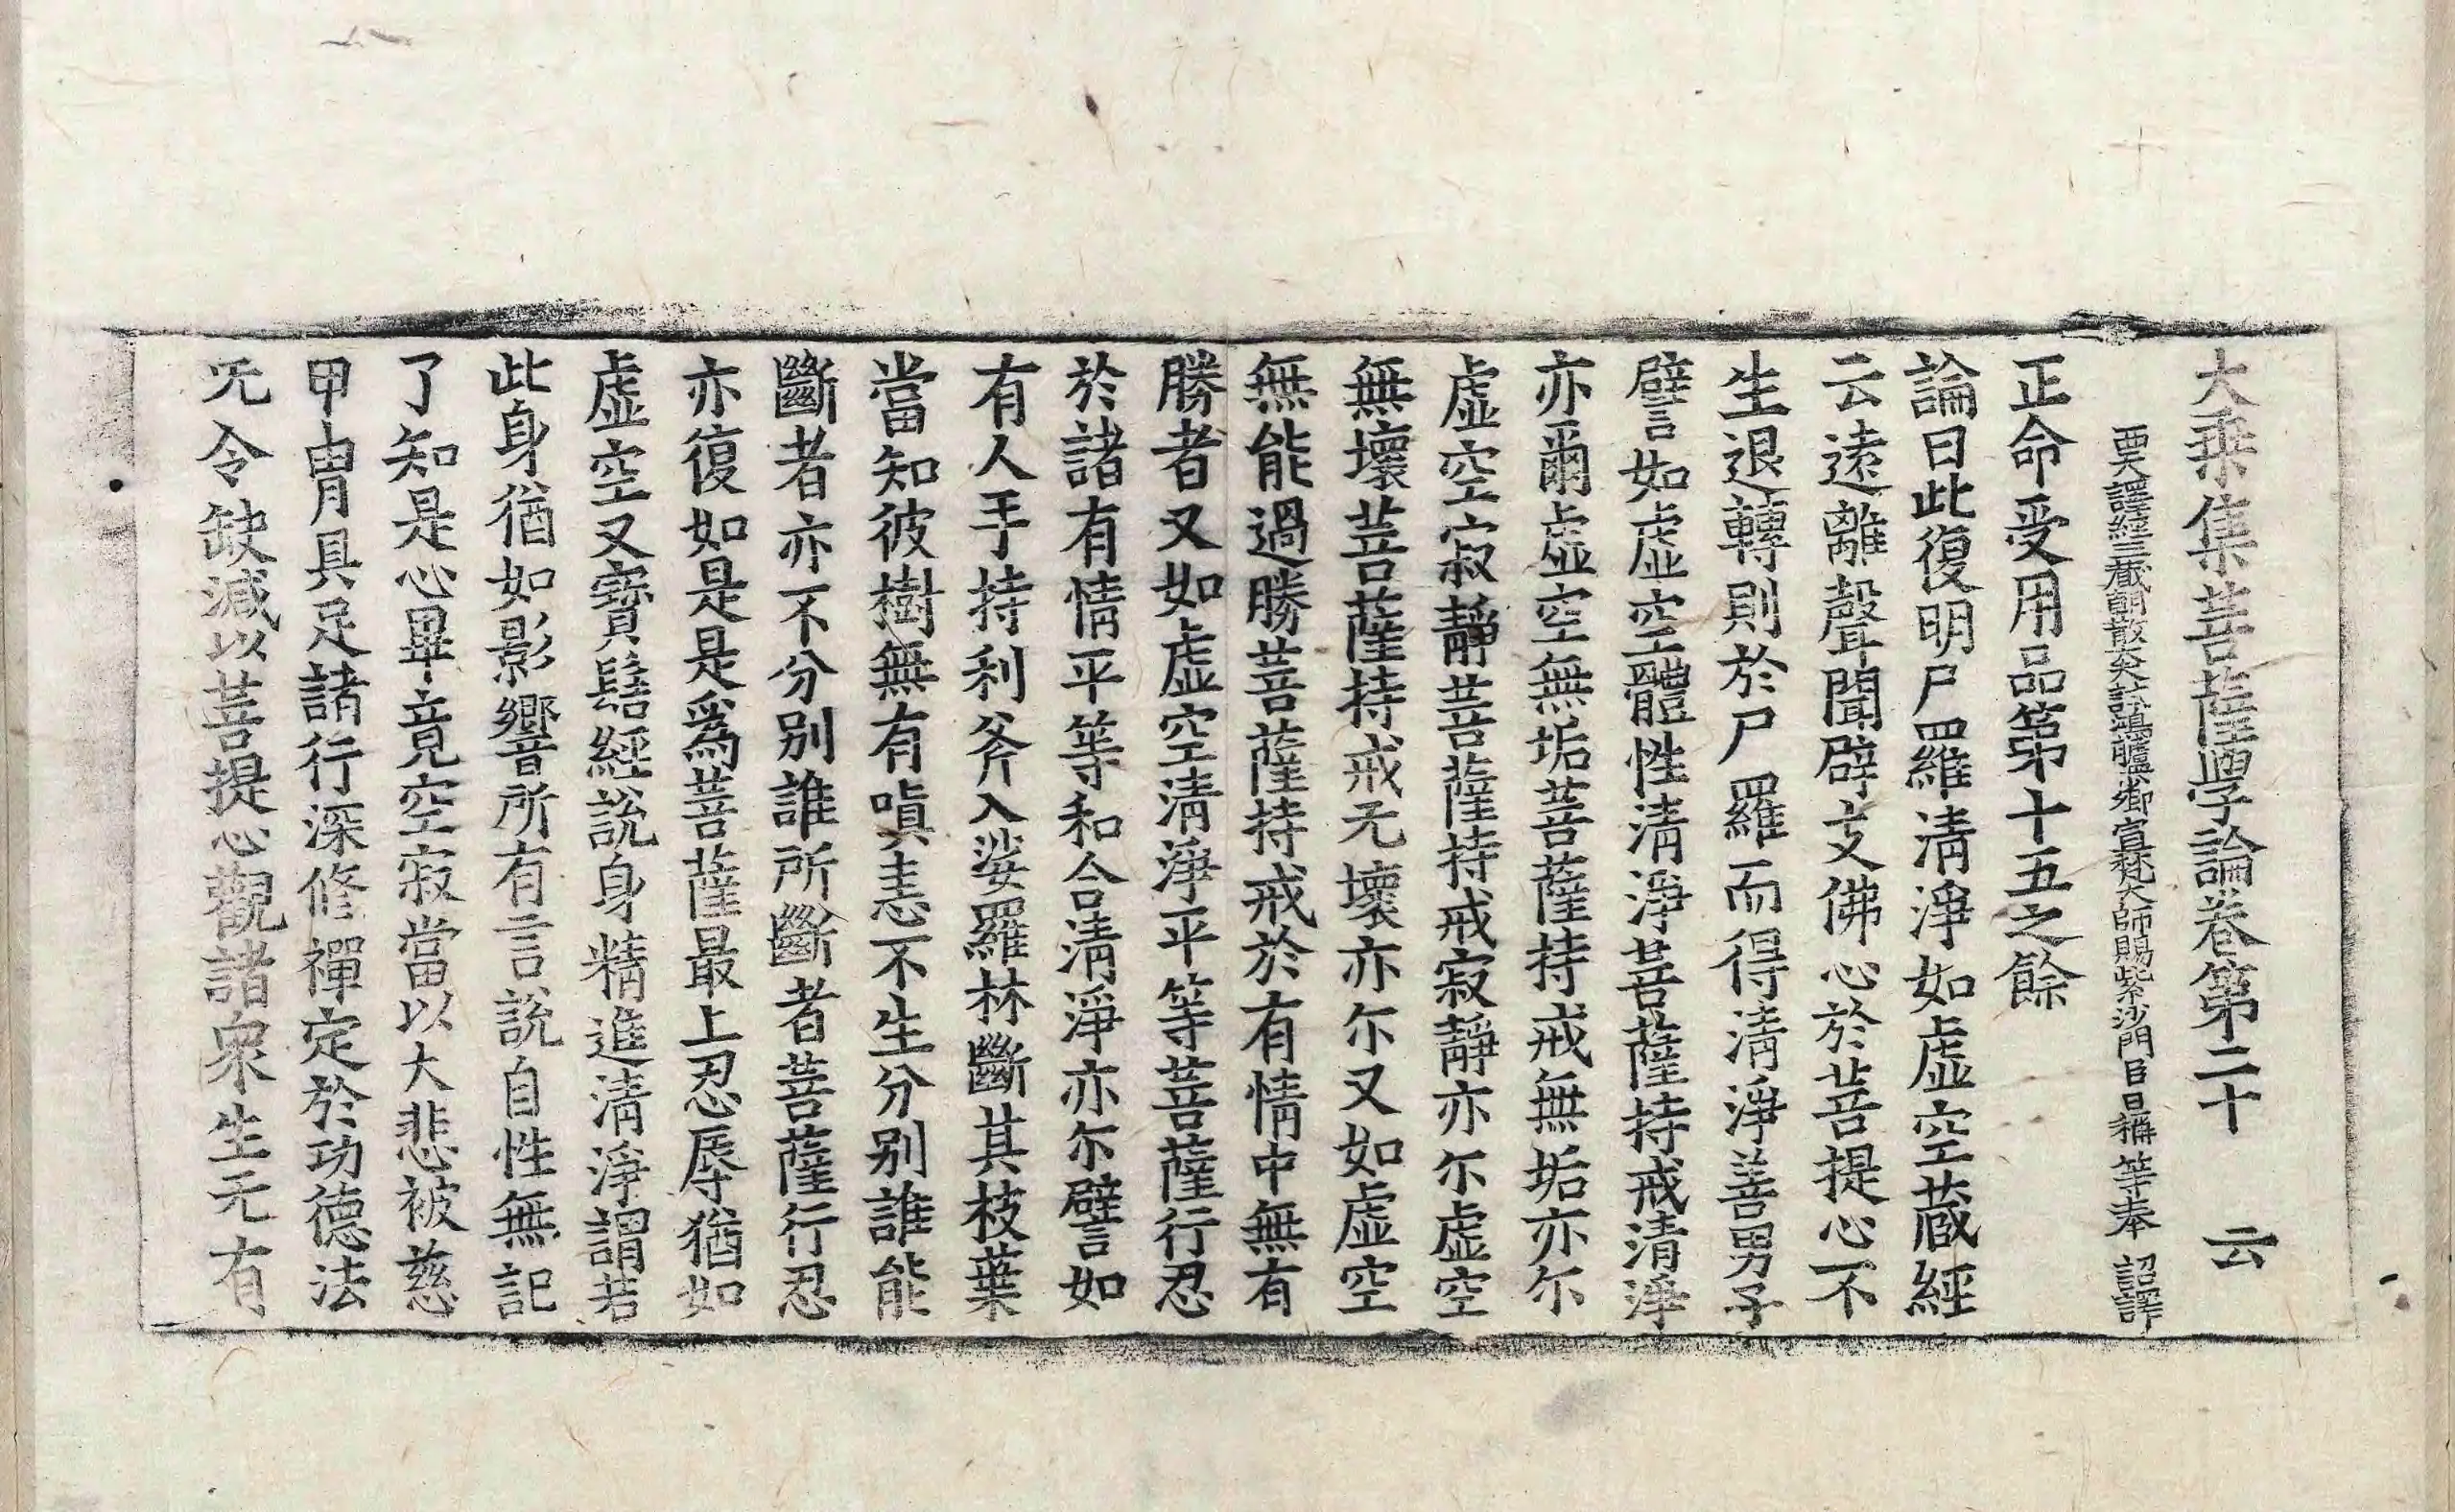 大乗集菩薩學論卷第二十　云
西天譯經三藏朝散大夫試鴻臚少卿宣梵大師賜紫沙門臣日稱等奉　詔譯
正命受用品第十五之餘
論曰此復明尸羅清淨如虛空藏經
云遠離聲聞辟支佛心於菩提心不
生退轉則於尸羅而得清淨善男子
譬如虛空體性清淨菩薩持戒清淨
亦爾虛空無垢菩薩持戒無垢亦尓
虛空寂靜菩薩持戒寂靜亦尓虛空
無壞菩薩持戒无壞亦尓又如虛空
無能過勝菩薩持戒於有情中無有
勝者又如虛空清淨平等菩薩行忍
於諸有情平等和合清淨亦尓譬如
有人手持利斧入娑羅林斷其枝葉
當知彼樹無有嗔恚不生分別誰能
斷者亦不分別誰所斷者菩薩行忍
亦復如是是爲菩薩最上忍辱猶如
虛空又寶髻經說身精進清淨謂若
此身猶如影響所有言說自性無記
了知是心畢竟空寂當以大悲被慈
甲冑具足諸行深修禪定於功德法
无令缺減以菩提心觀諸衆生无有